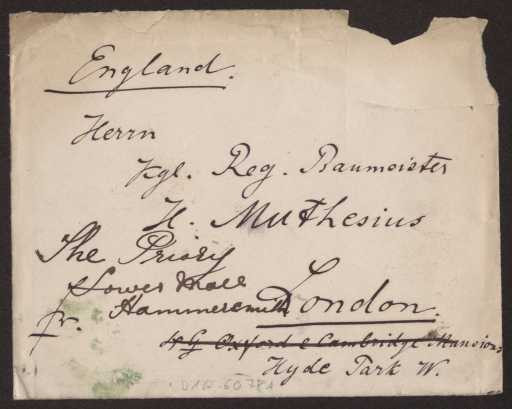 England.
Herrn
Kgl. Reg. Baumeister
H. Muthesius
The Priory
Lower Mall
Hammersmith
fr.
London.
49 Oxford & Cambridge Mansions
Hyde Park W.